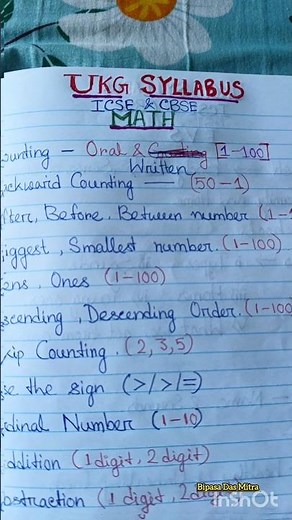 UKG SYLLABUS
ICSE & CBSE
MATH
ounting - Oral & Written [1-100]
ackward Counting — (50-1)
fter, Before, Between number (1-1
iggest, Smallest number. (1-100)
ens, Ones (1-100)
scending, Descending Order. (1-100
kip Counting. (2, 3, 5)
se the sign (>/>/=)
dinal Number (1-10)
ddition (1 digit, 2 digit)
bstraction (1 digit, 2 digit)
Bipasa Das Mitra
InShot